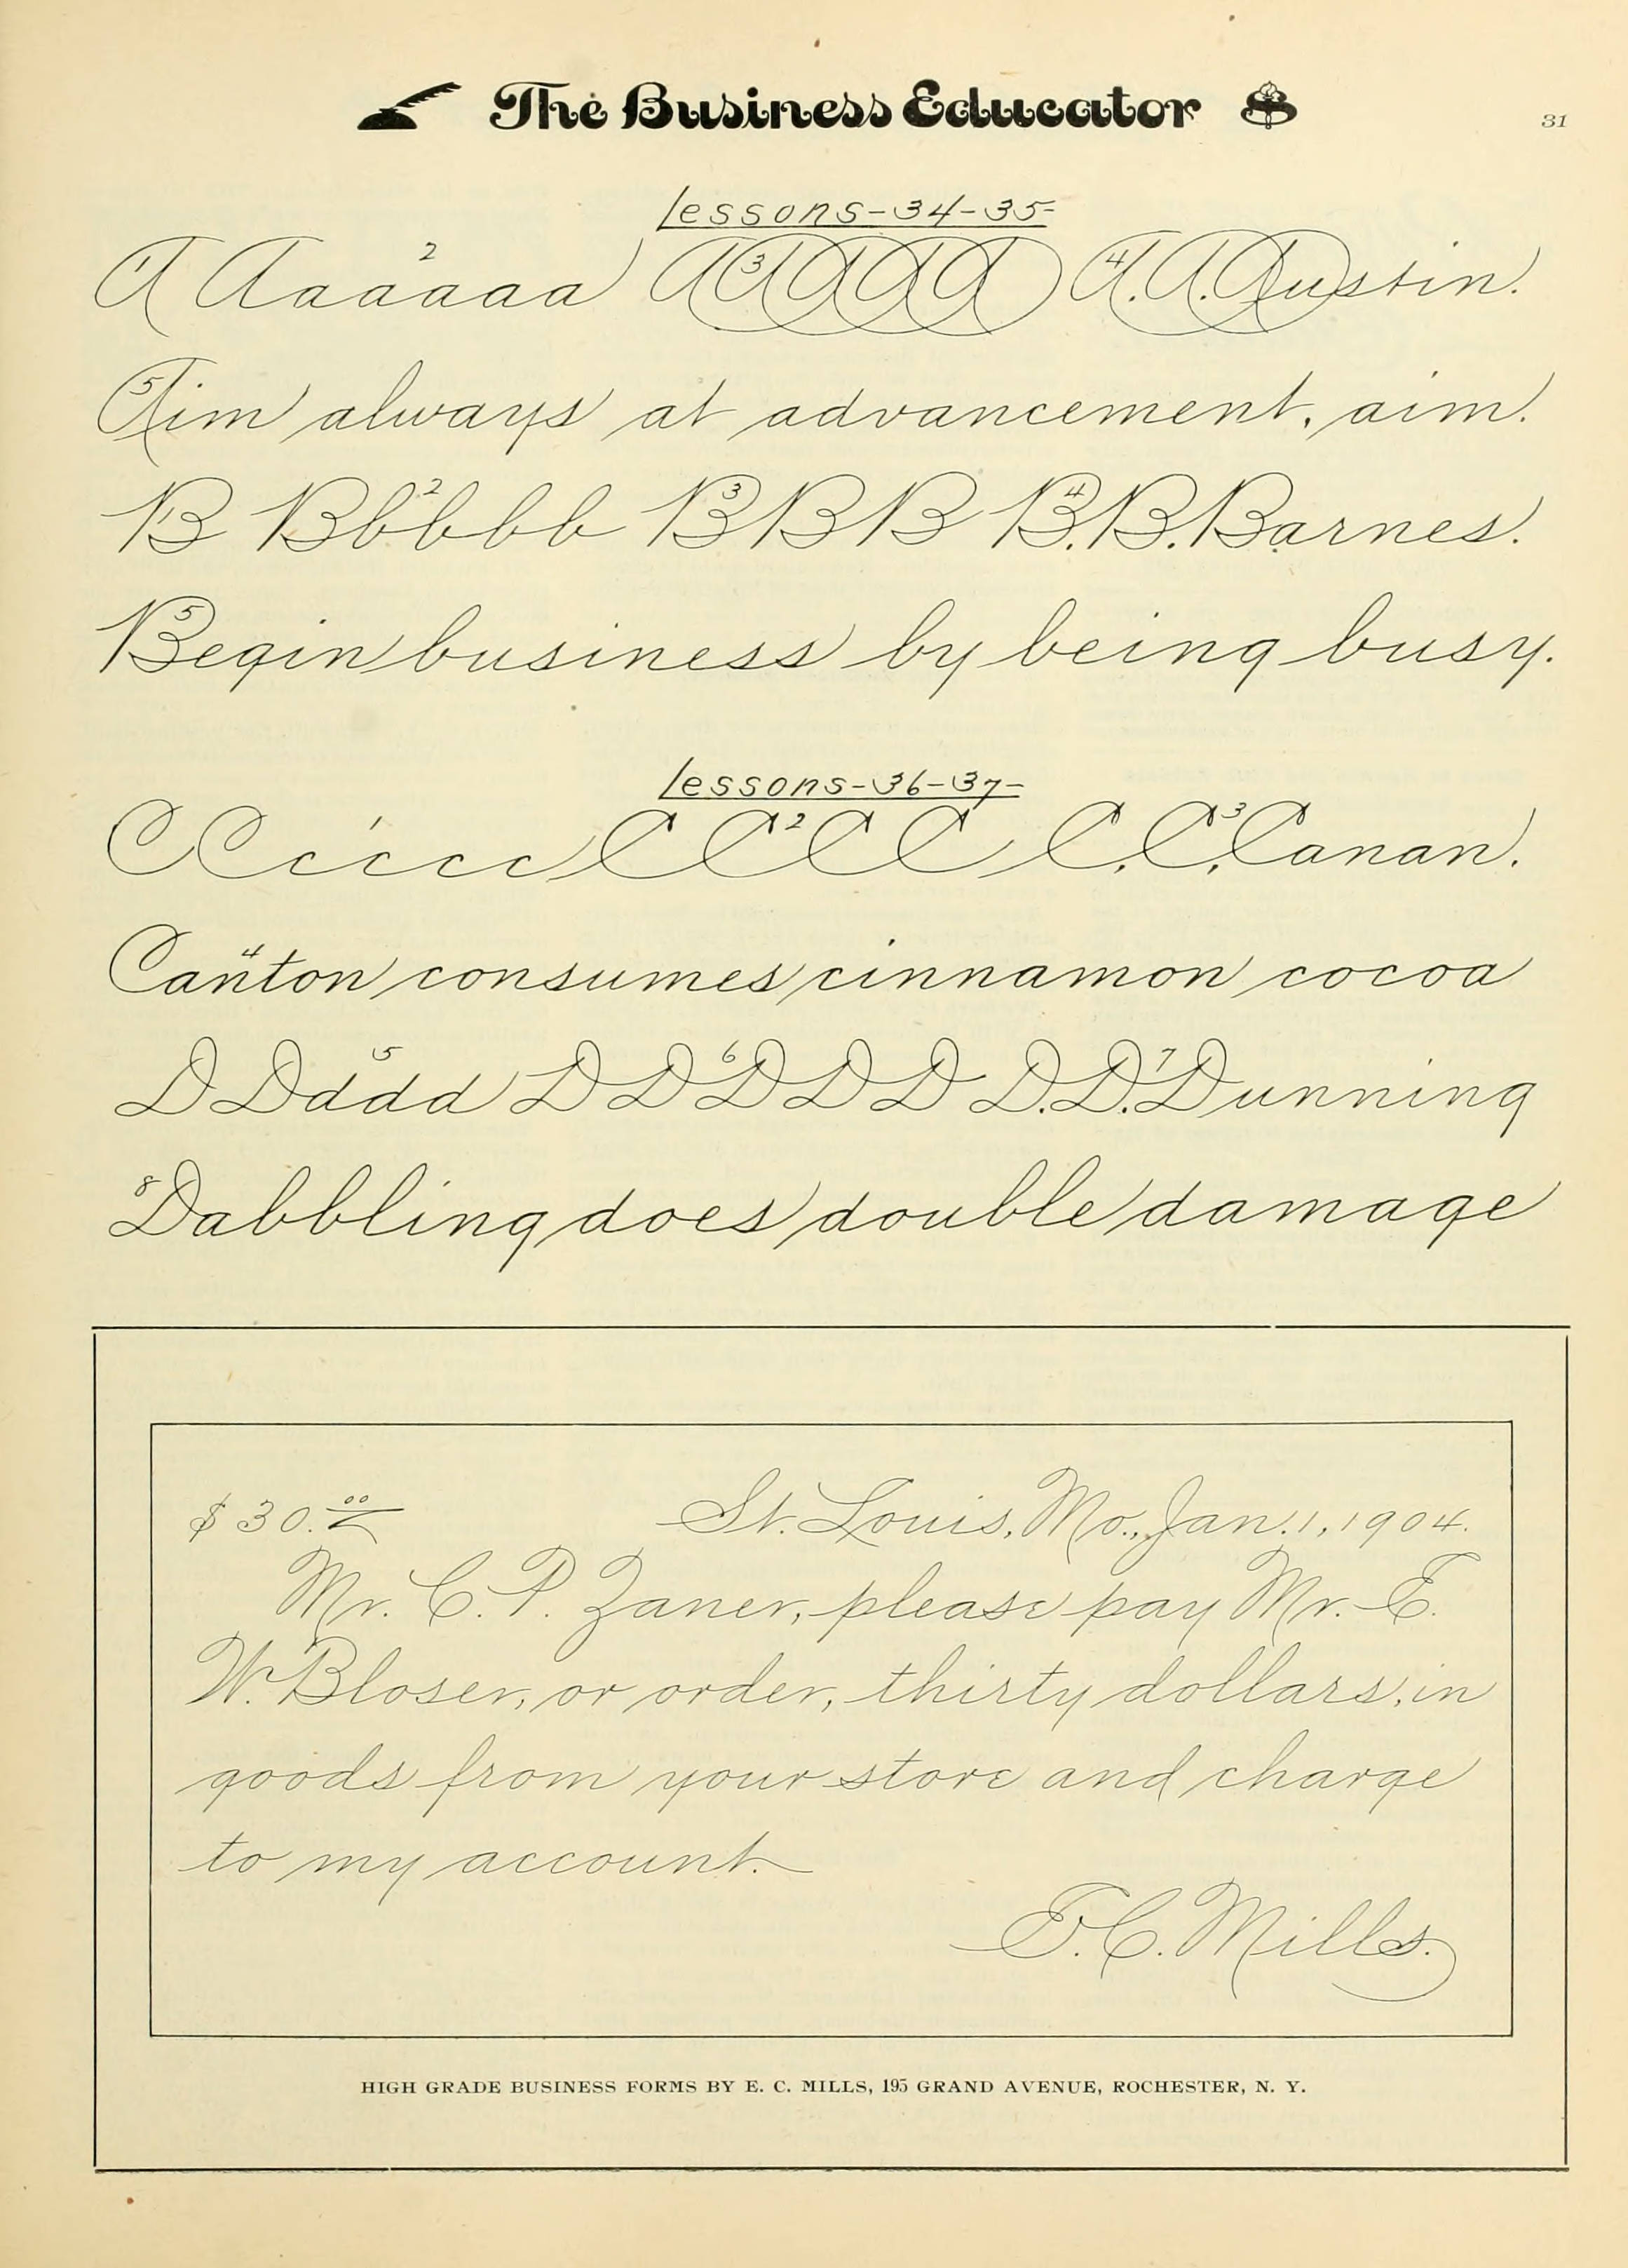 The Business Educator
31
lessons-34-35-
1 A A a a a a a a 2 A A A A A 3 A. A. Austin. 4
5 Aim always at advancement, aim.
1 B B b b b b b 2 B B B 3 B. B. Barnes. 4
5 Begin business by being busy.
lessons-36-37-
C C c c c c c 1 C C C C 2 C. C. Canan. 3
4 Canton consumes cinnamon cocoa
D D d d d d 5 D D D D D 6 D. D. Dunning 7
8 Dabbling does double damage
$30.00/ St. Louis, Mo., Jan. 1, 1904.
Mr. C. P. Zaner, please pay Mr. E.
W. Bloser, or order, thirty dollars, in
goods from your store and charge
to my account.
E. C. Mills.
HIGH GRADE BUSINESS FORMS BY E. C. MILLS, 195 GRAND AVENUE, ROCHESTER, N. Y.